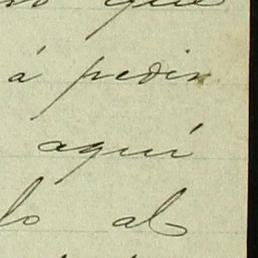 que
á pedir
aquí
lo al